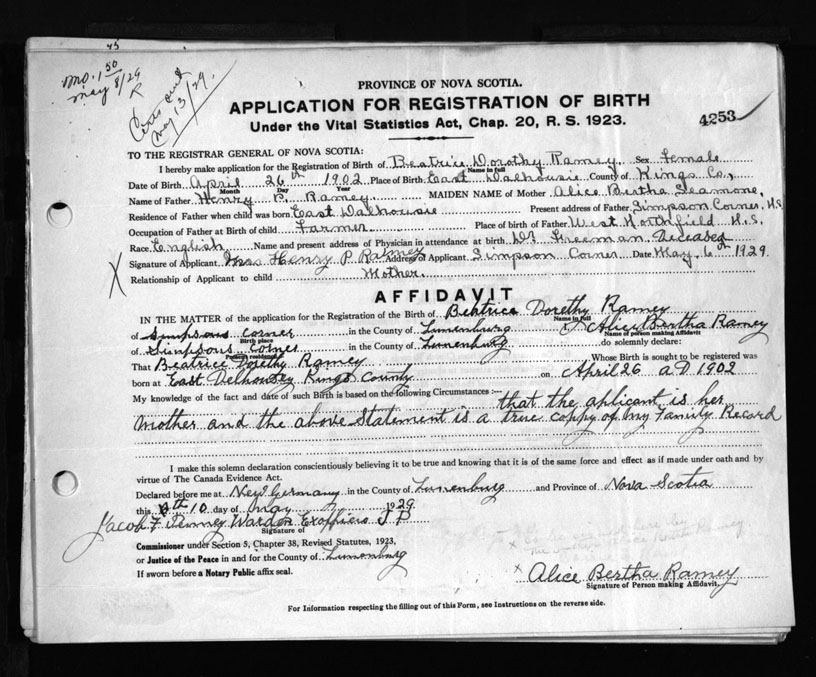 45
mo. 1 50
May 8/29
K
Cert sent
May 13/29.
PROVINCE OF NOVA SCOTIA.
APPLICATION FOR REGISTRATION OF BIRTH
4253
Under the Vital Statistics Act, Chap. 20, R. S. 1923.
TO THE REGISTRAR GENERAL OF NOVA SCOTIA:
I hereby make application for the Registration of Birth of Beatrice Dorothy Ramey Sex Female
Name in full
Date of Birth April 26th 1902 Place of Birth East Dalhousie County of Kings Co.,
Month Day Year
Name of Father Henry P. Ramey. MAIDEN NAME of Mother Alice Bertha Seamone,
Residence of Father when child was born East Dalhousie Present address of Father Simpson Corner, N.S.
Occupation of Father at Birth of child Farmer Place of birth of Father West Northfield N.S.
Race English Name and present address of Physician in attendance at birth Dr Freeman Deceased
Signature of Applicant Mrs Henry P Ramey Address of Applicant Simpson Corner Date May 6th 1929.
X
Relationship of Applicant to child Mother.
AFFIDAVIT
IN THE MATTER of the application for the Registration of the Birth of Beatrice Dorethy Ramey
Name in full
of Simpsons corner in the County of Lunenburg I Alice Bertha Ramey
Birth place Name of person making Affidavit
of Simpsons Corner in the County of Lunenburg do solemnly declare:
Present residence
That Beatrice Dorethy Ramey Whose Birth is sought to be registered was
born at East Delhousey Kings County on April 26 A.D. 1902
My knowledge of the fact and date of such Birth is based on the following Circumstances:— that the aplicant is her
Mother and the above Statement is a true coppy of My Family Record
I make this solemn declaration conscientiously believing it to be true and knowing that it is of the same force and effect as if made under oath and by
virtue of The Canada Evidence Act.
Declared before me at New Germany in the County of Lunenburg and Province of Nova Scotia
this 10 day of May 1929
Jacob F Penney Warden Exofficio J P
Signature of
Commissioner under Section 5, Chapter 38, Revised Statutes, 1923,
or Justice of the Peace in and for the County of Lunenburg
If sworn before a Notary Public affix seal.
x Alice Bertha Ramey
Signature of Person making Affidavit.
For Information respecting the filling out of this Form, see Instructions on the reverse side.